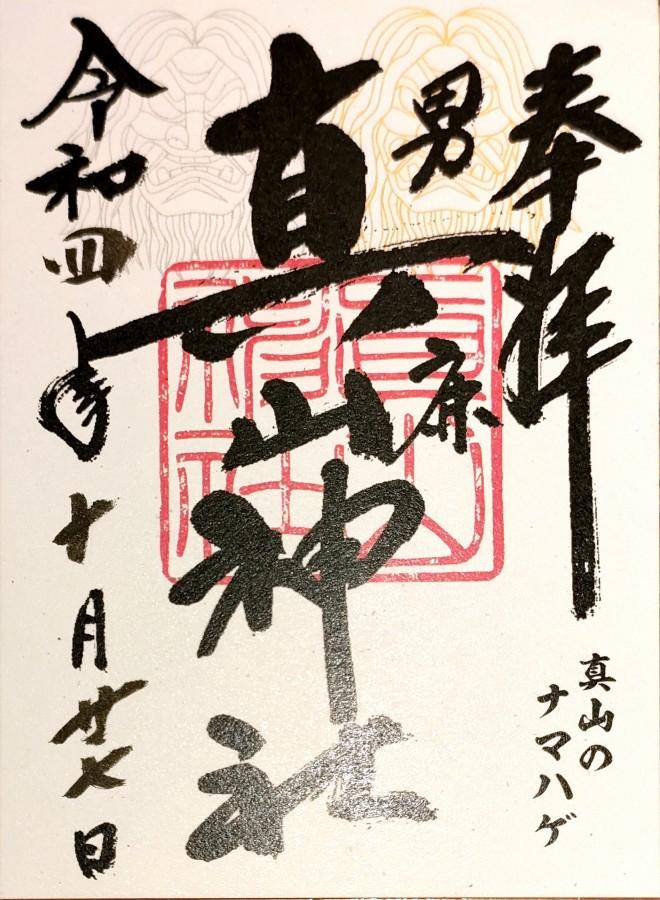 奉拝
真山の
ナマハゲ
男鹿
真山神社
令和四年十月廿七日